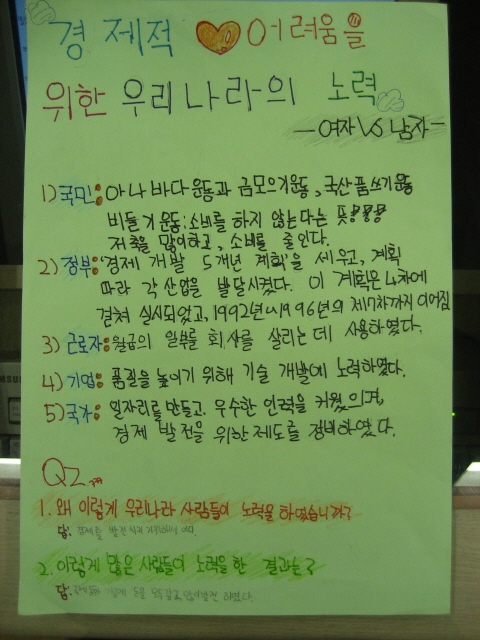 경제적 어려움을
위한 우리나라의 노력
-여자 VS 남자-
1) 국민: 아나바다운동과 금모으기운동, 국산품쓰기운동
비둘기운동: 소비를 하지 않는다는 뜻!!!!
저축을 많이하고, 소비를 줄인다.
2) 정부: '경제 개발 5개년 계획'을 세우고, 계획
따라 각 산업을 발달시켰다. 이 계획은 4차에
걸쳐 실시되었고, 1992년~1996년의 제7차까지 이어짐
3) 근로자: 월급의 일부를 회사를 살리는 데 사용하였다.
4) 기업: 품질을 높이기 위해 기술 개발에 노력하였다.
5) 국가: 일자리를 만들고, 우수한 인력을 키웠으며,
경제 발전을 위한 제도를 정비하였다.
QZ
1. 왜 이렇게 우리나라 사람들이 노력을 하였습니까?
답. 경제를 발전 시키기 위해서 이다
2. 이렇게 많은 사람들이 노력을 한 결과는?
답.
SAMSUNG